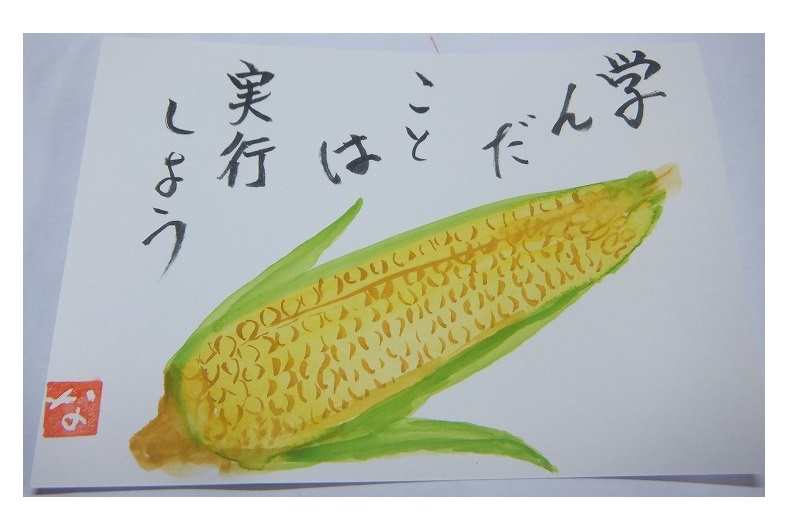 学
んだ
こと
は
実行
しよう